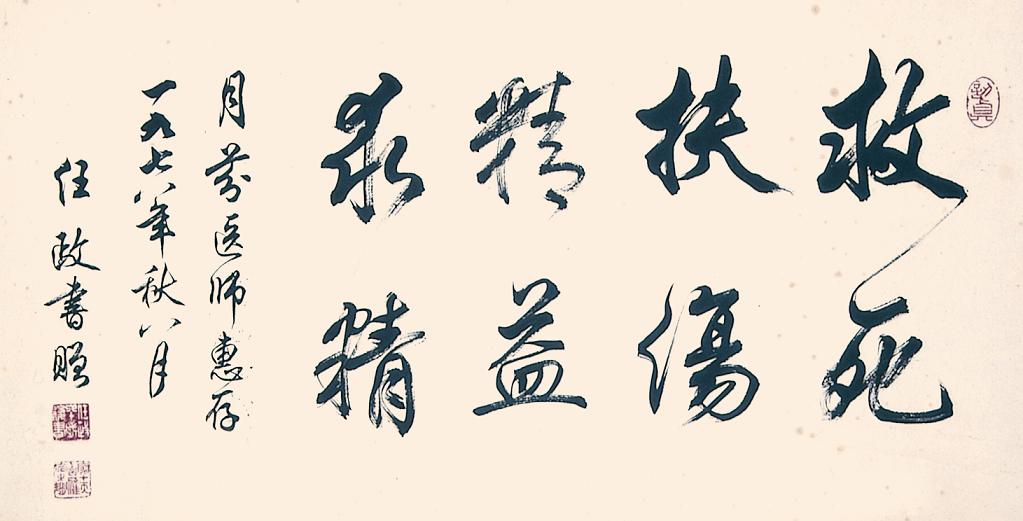 救死
扶傷
精益
求精
月芬医师惠存
一九七八年秋八月
任政书赠